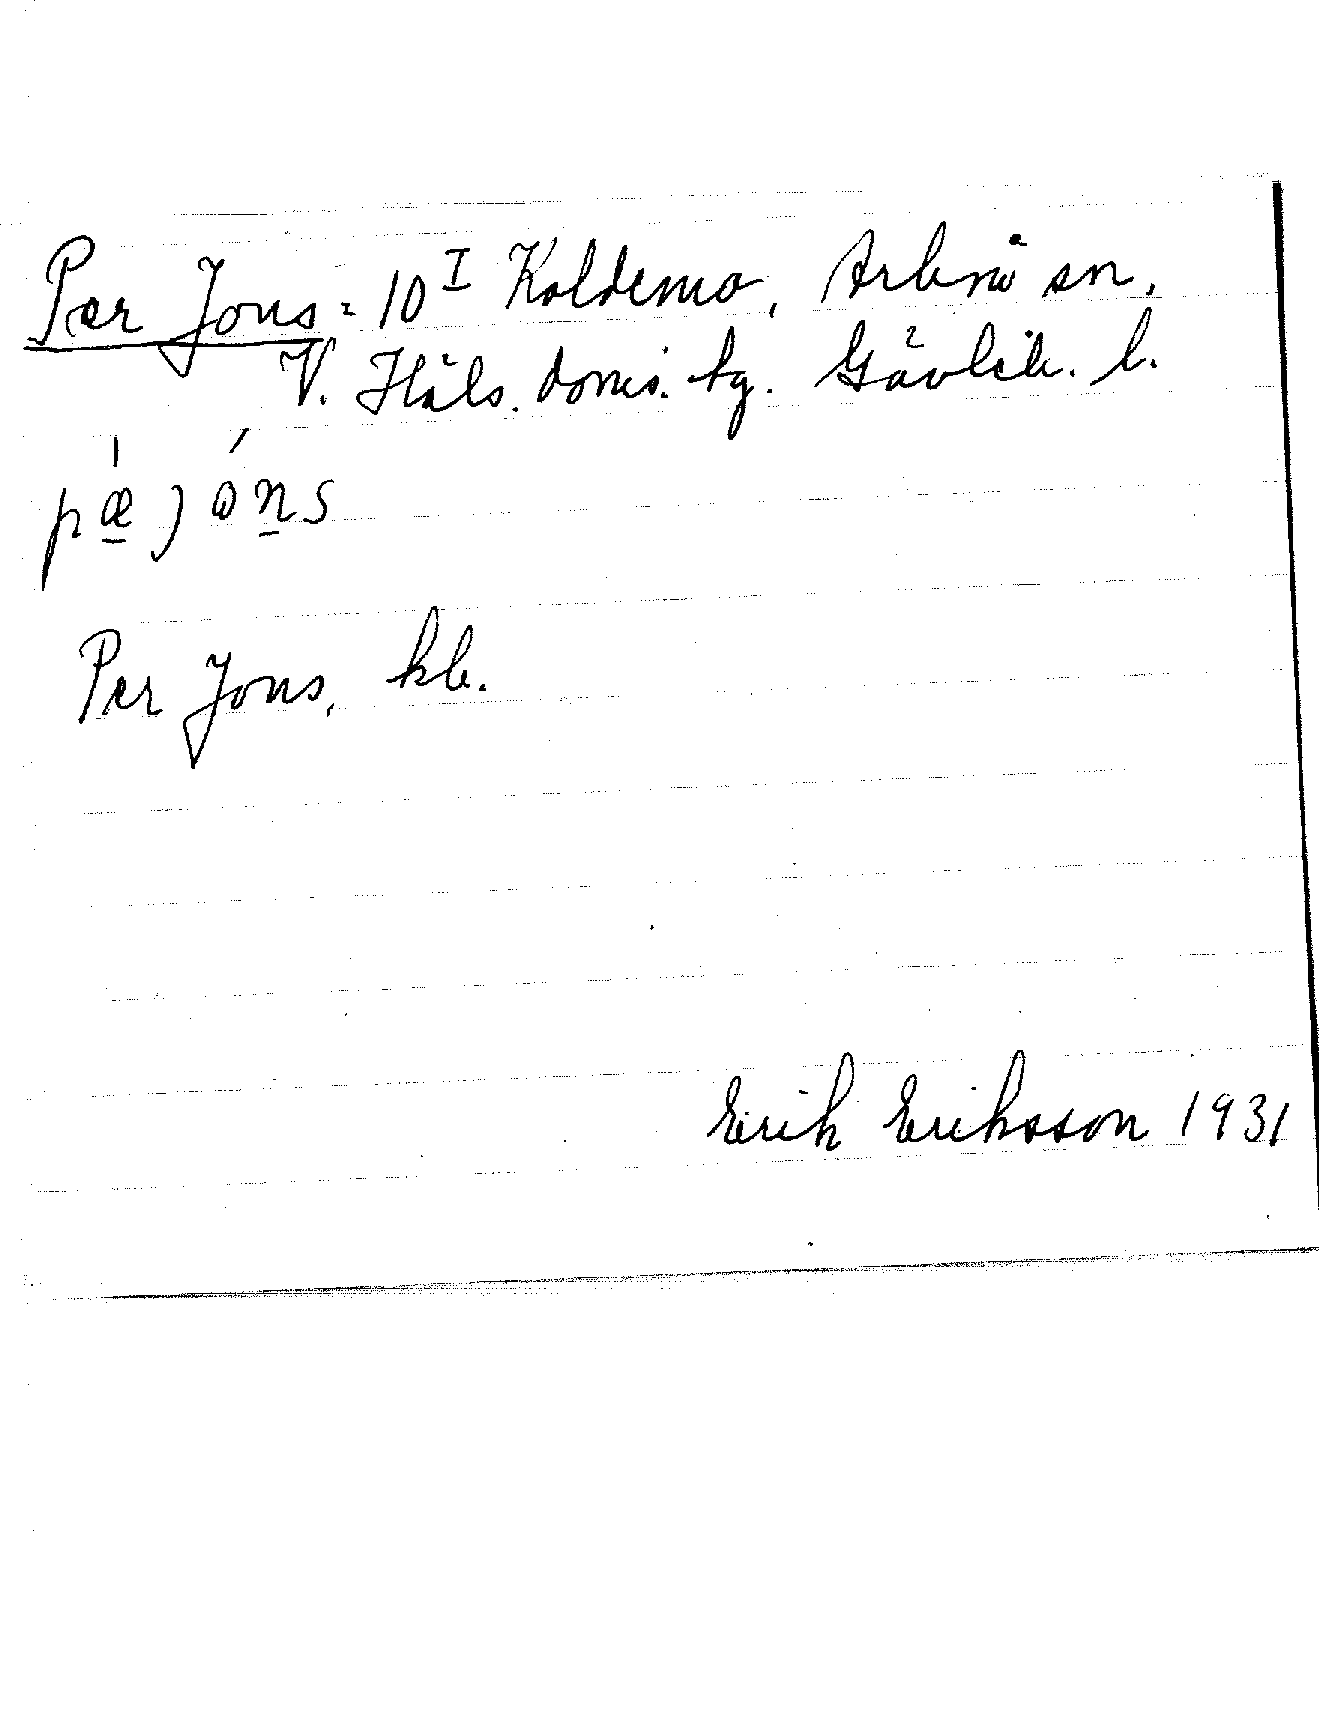 Per Jons = 10 I Koldemo, Arbrå sn,
V. Häls. doms. tg. Gävleb. l.
pæ̱ jo̱ns
Per Jons, kb.
Erik Eriksson 1931